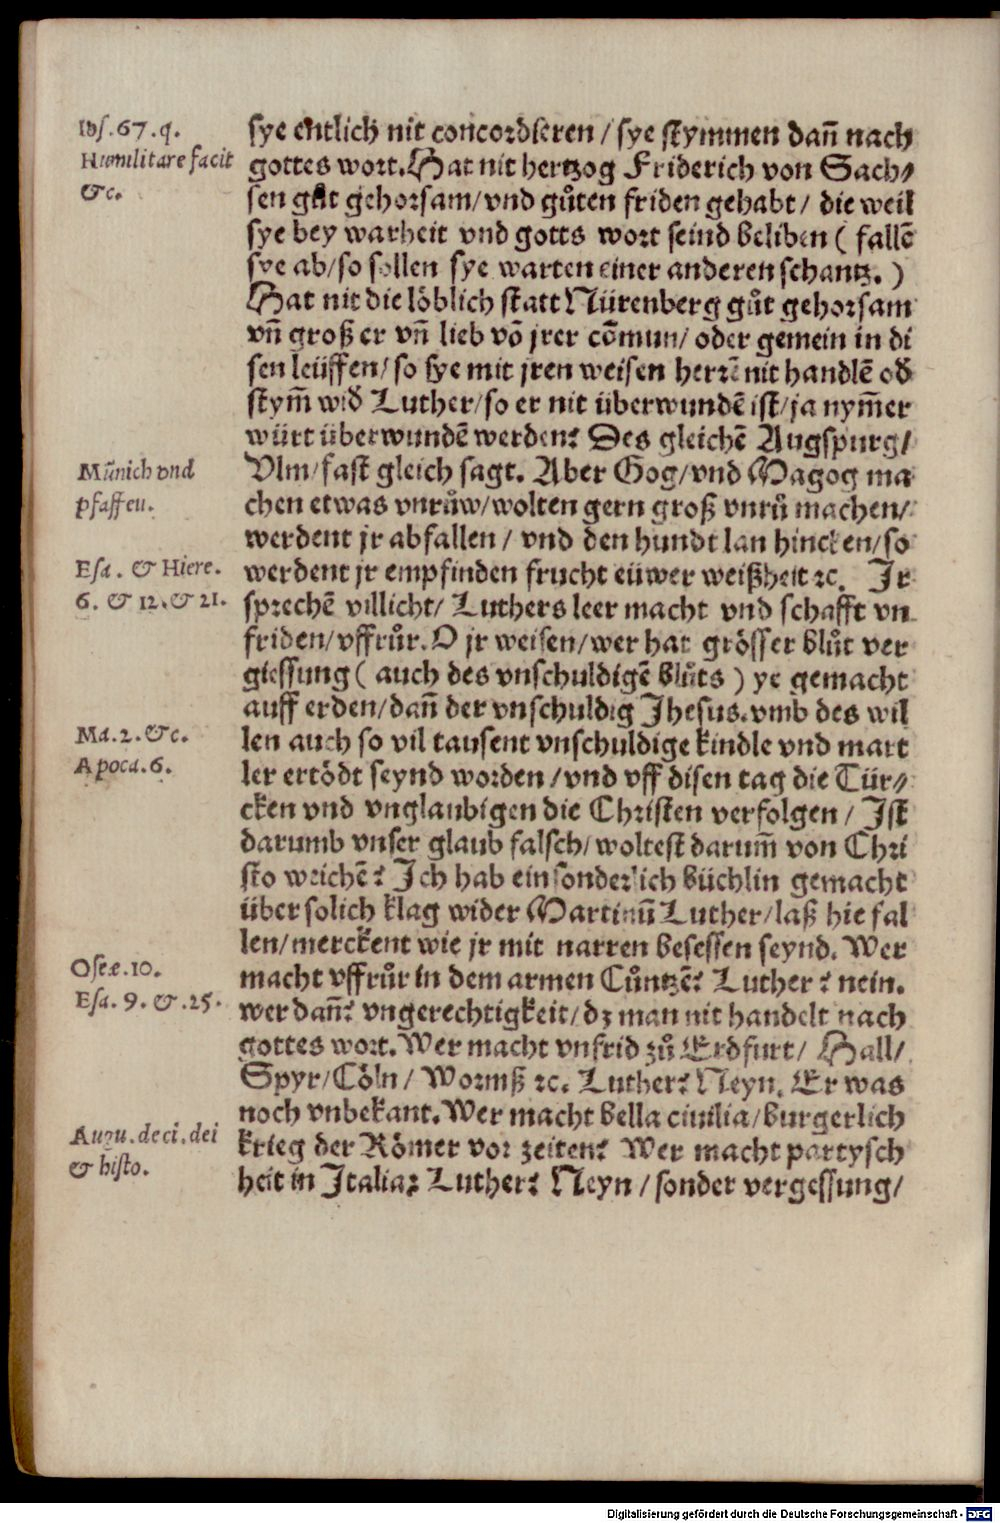 Ibs.67.q.
Humilitare facit
&c.
sye entlich nit concordseren / sye stymmen dañ nach
gottes wort. Hat nit hertzog Friderich von Sach⸗
sen gůt gehorsam/vnd gůten friden gehabt / die weil
sye bey warheit vnd gotts wort seind beliben ( fallē
sye ab/so sollen sye warten einer anderen schantz. )
Hat nit die löblich statt Nürenberg gůt gehorsam
vñ groß er vñ lieb vō jrer cōmun/ oder gemein in di
sen leüffen/ so sye mit jren weisen herrē nit handlē od
stym̃ wid Luther/so er nit überwundē ist/ja nym̃er
würt überwundē werden? Des gleichē Augspurg/
Münich vnd
pfaffen.
Vlm/fast gleich sagt. Aber Gog/vnd Magog ma
chen etwas vnrůw/wolten gern groß vnrů machen/
werdent jr abfallen / vnd den hundt lan hincken/so
Esa. & Hiere.
6. & 12.& 21.
werdent jr empfinden frucht eüwer weißheit ꝛc. Jr
sprechē villicht/ Luthers leer macht vnd schafft vn
friden/vffrůr. O jr weisen/wer hat grösser blůt ver
giessung ( auch des vnschuldigē blůts ) ye gemacht
auff erden/dañ der vnschuldig Jhesus.vmb des wil
Ma.2.&c.
Apoca.6.
len auch so vil tausent vnschuldige kindle vnd mart
ler ertödt seynd worden /vnd vff disen tag die Tür⸗
cken vnd vnglaubigen die Christen verfolgen / Ist
darumb vnser glaub falsch/woltest darum̃ von Chri
sto weichē? Ich hab ein sonderlich büchlin gemacht
über solich klag wider Martinū Luther/laß hie fal
len/merckent wie jr mit narren besessen seynd. Wer
Oseæ.10.
Esa. 9. &.25.
macht vffrůr in dem armen Cůntzē? Luther ? nein.
wer dañ? vngerechtigkeit/dz man nit handelt nach
gottes wort. Wer macht vnfrid zů Erdfurt/ Hall/
Spyr/Cöln/ Wormß ꝛc. Luther? Neyn. Er was
noch vnbekant. Wer macht bella ciuilia/burgerlich
Augu.de ci.dei
& histo.
krieg der Römer vor zeiten? Wer macht partysch
heit in Italia? Luther? Neyn / sonder vergessung/
Digitalisierung gefördert durch die Deutsche Forschungsgemeinschaft - DFG